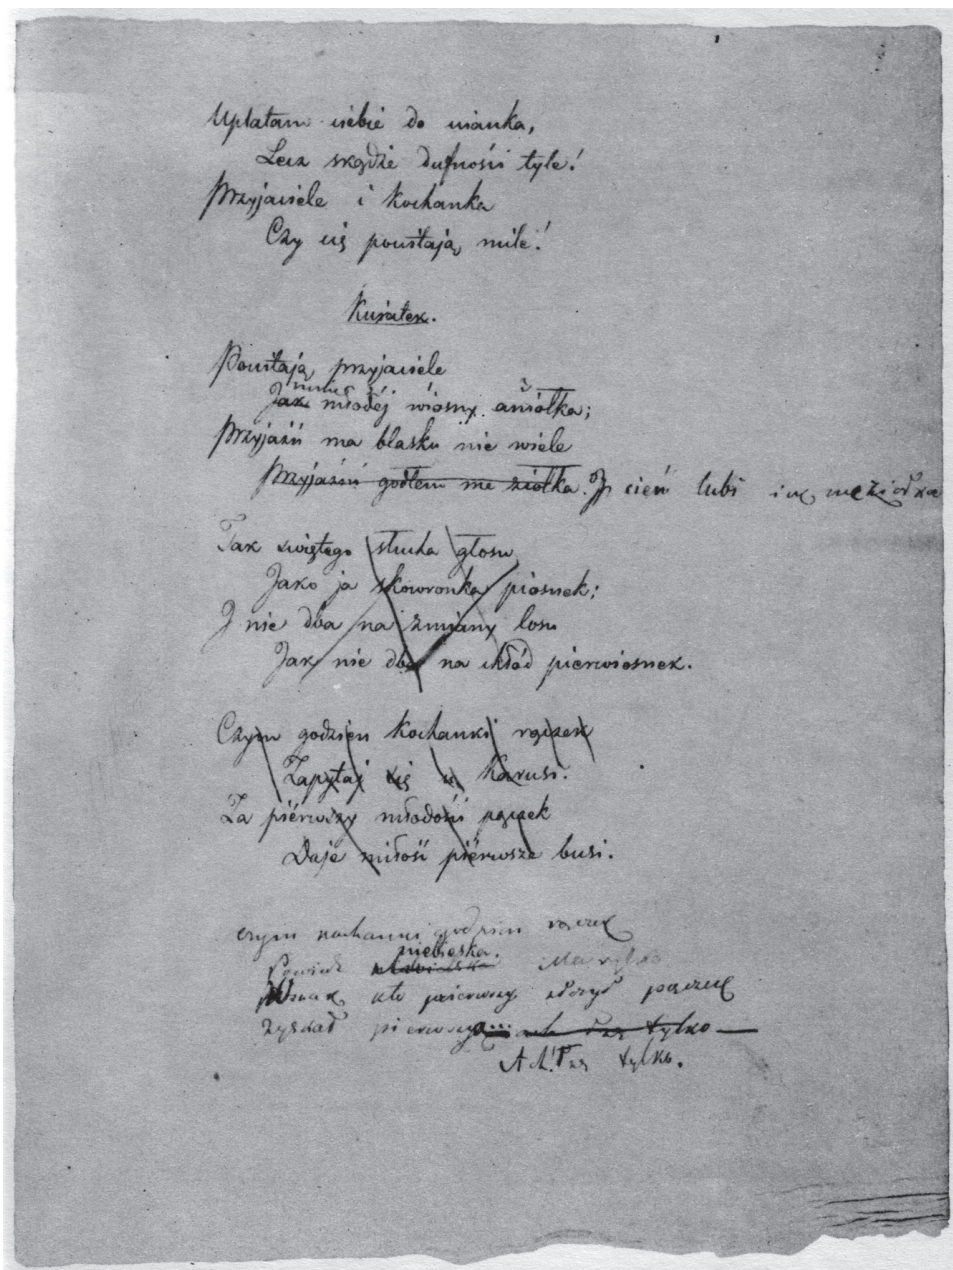 Uplatam ciebie do wianka,
Lecz skądże dufności tyle!
Przyjaciele i kochanka
Czy cię powitają mile!
Kwiatek.
Powitają przyjaciele
Jak młodéj wiosny aniołka;
Przyjaźń ma blasku nie wiele
Przyjaźń godłem me ziołka. I cień lubi
Tak świętego słucha głosu
Jako ja skowronka piosnek;
I nie dba na zmiany losu
Jak nie dba na chłód pierwiosnek.
Czym godzien kochanki rączek
Zapytaj się u Karusi.
Za piérwszy młodości pączek
Daje miłość piérwsze busi.
czym kochanki godzien rączek
niebieska.
Powiedz Marylko
Wszak kto piérwszy pączek
zyskał ach Łzę tylko
Ach! Łzę tylko.